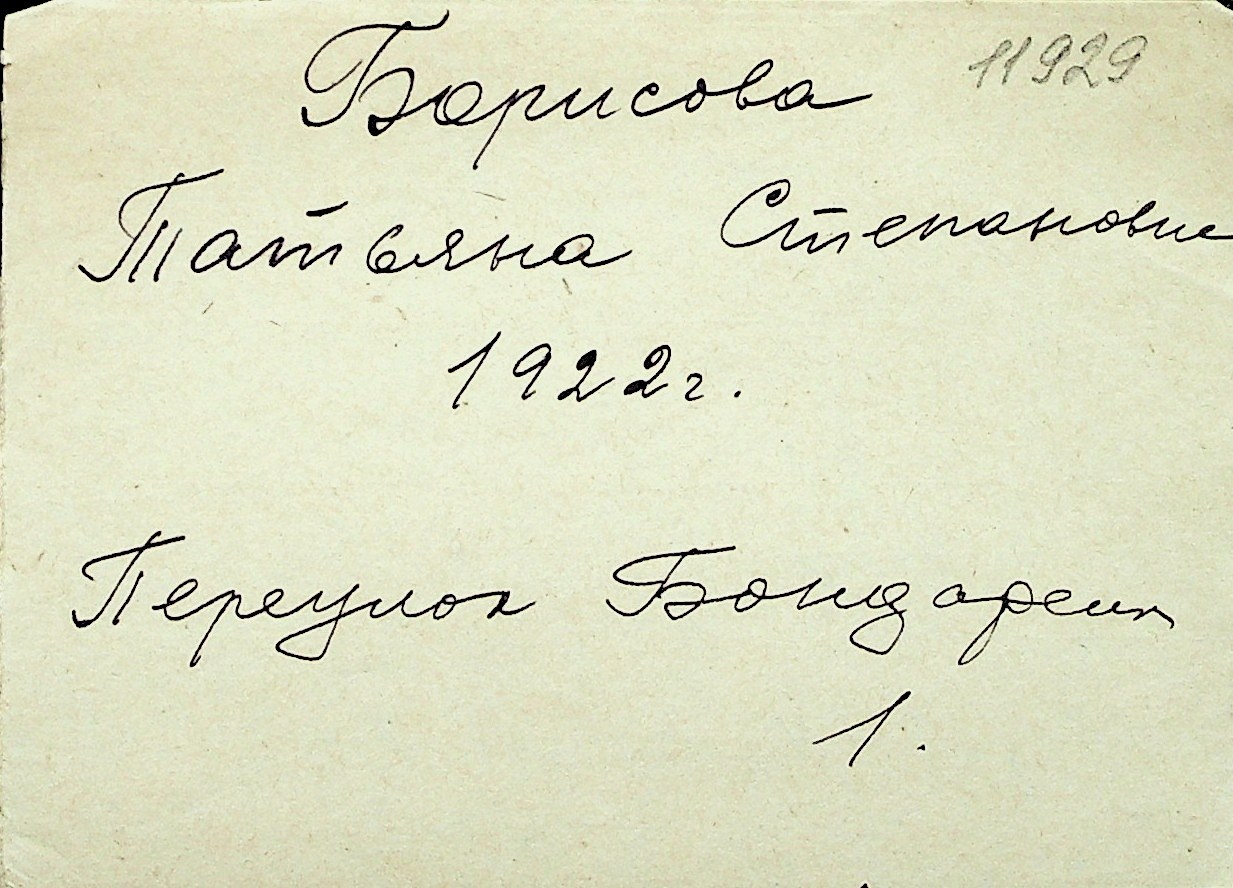 11929
Борисова
Татьяна Степановне
1922г.
Переулок Бондаренк
1.